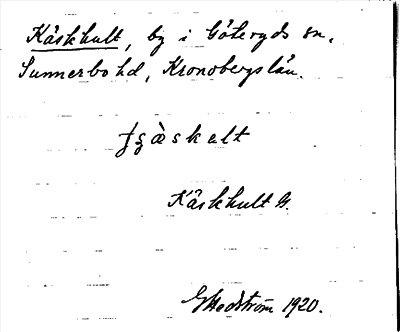 Käskhult, by i Göteryds sn,
Sunnerbo hd, Kronobergs län.
Käskhult G.
GHedström 1920.